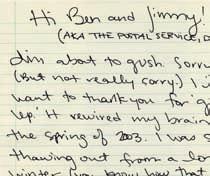 Hi Ben and Jimmy!
(AKA THE POSTAL SERVICE, D
dim abot to gush. Sorry
(But not really sorry.) I
want to thank you for 'g
Up.' It rewired my brain
the spring of 2003. I was s
thawing out from a lon
winter (you know how that